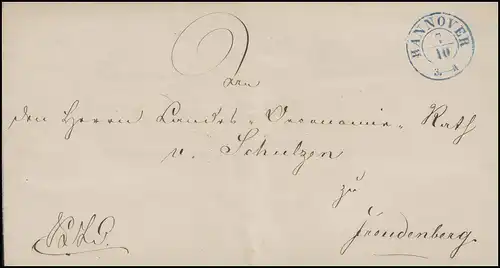 HANNOVER
7
10
3-4
An
den Herrn Landes-Oeconomie-Rath
v. Schulzen
zu
Freudenberg